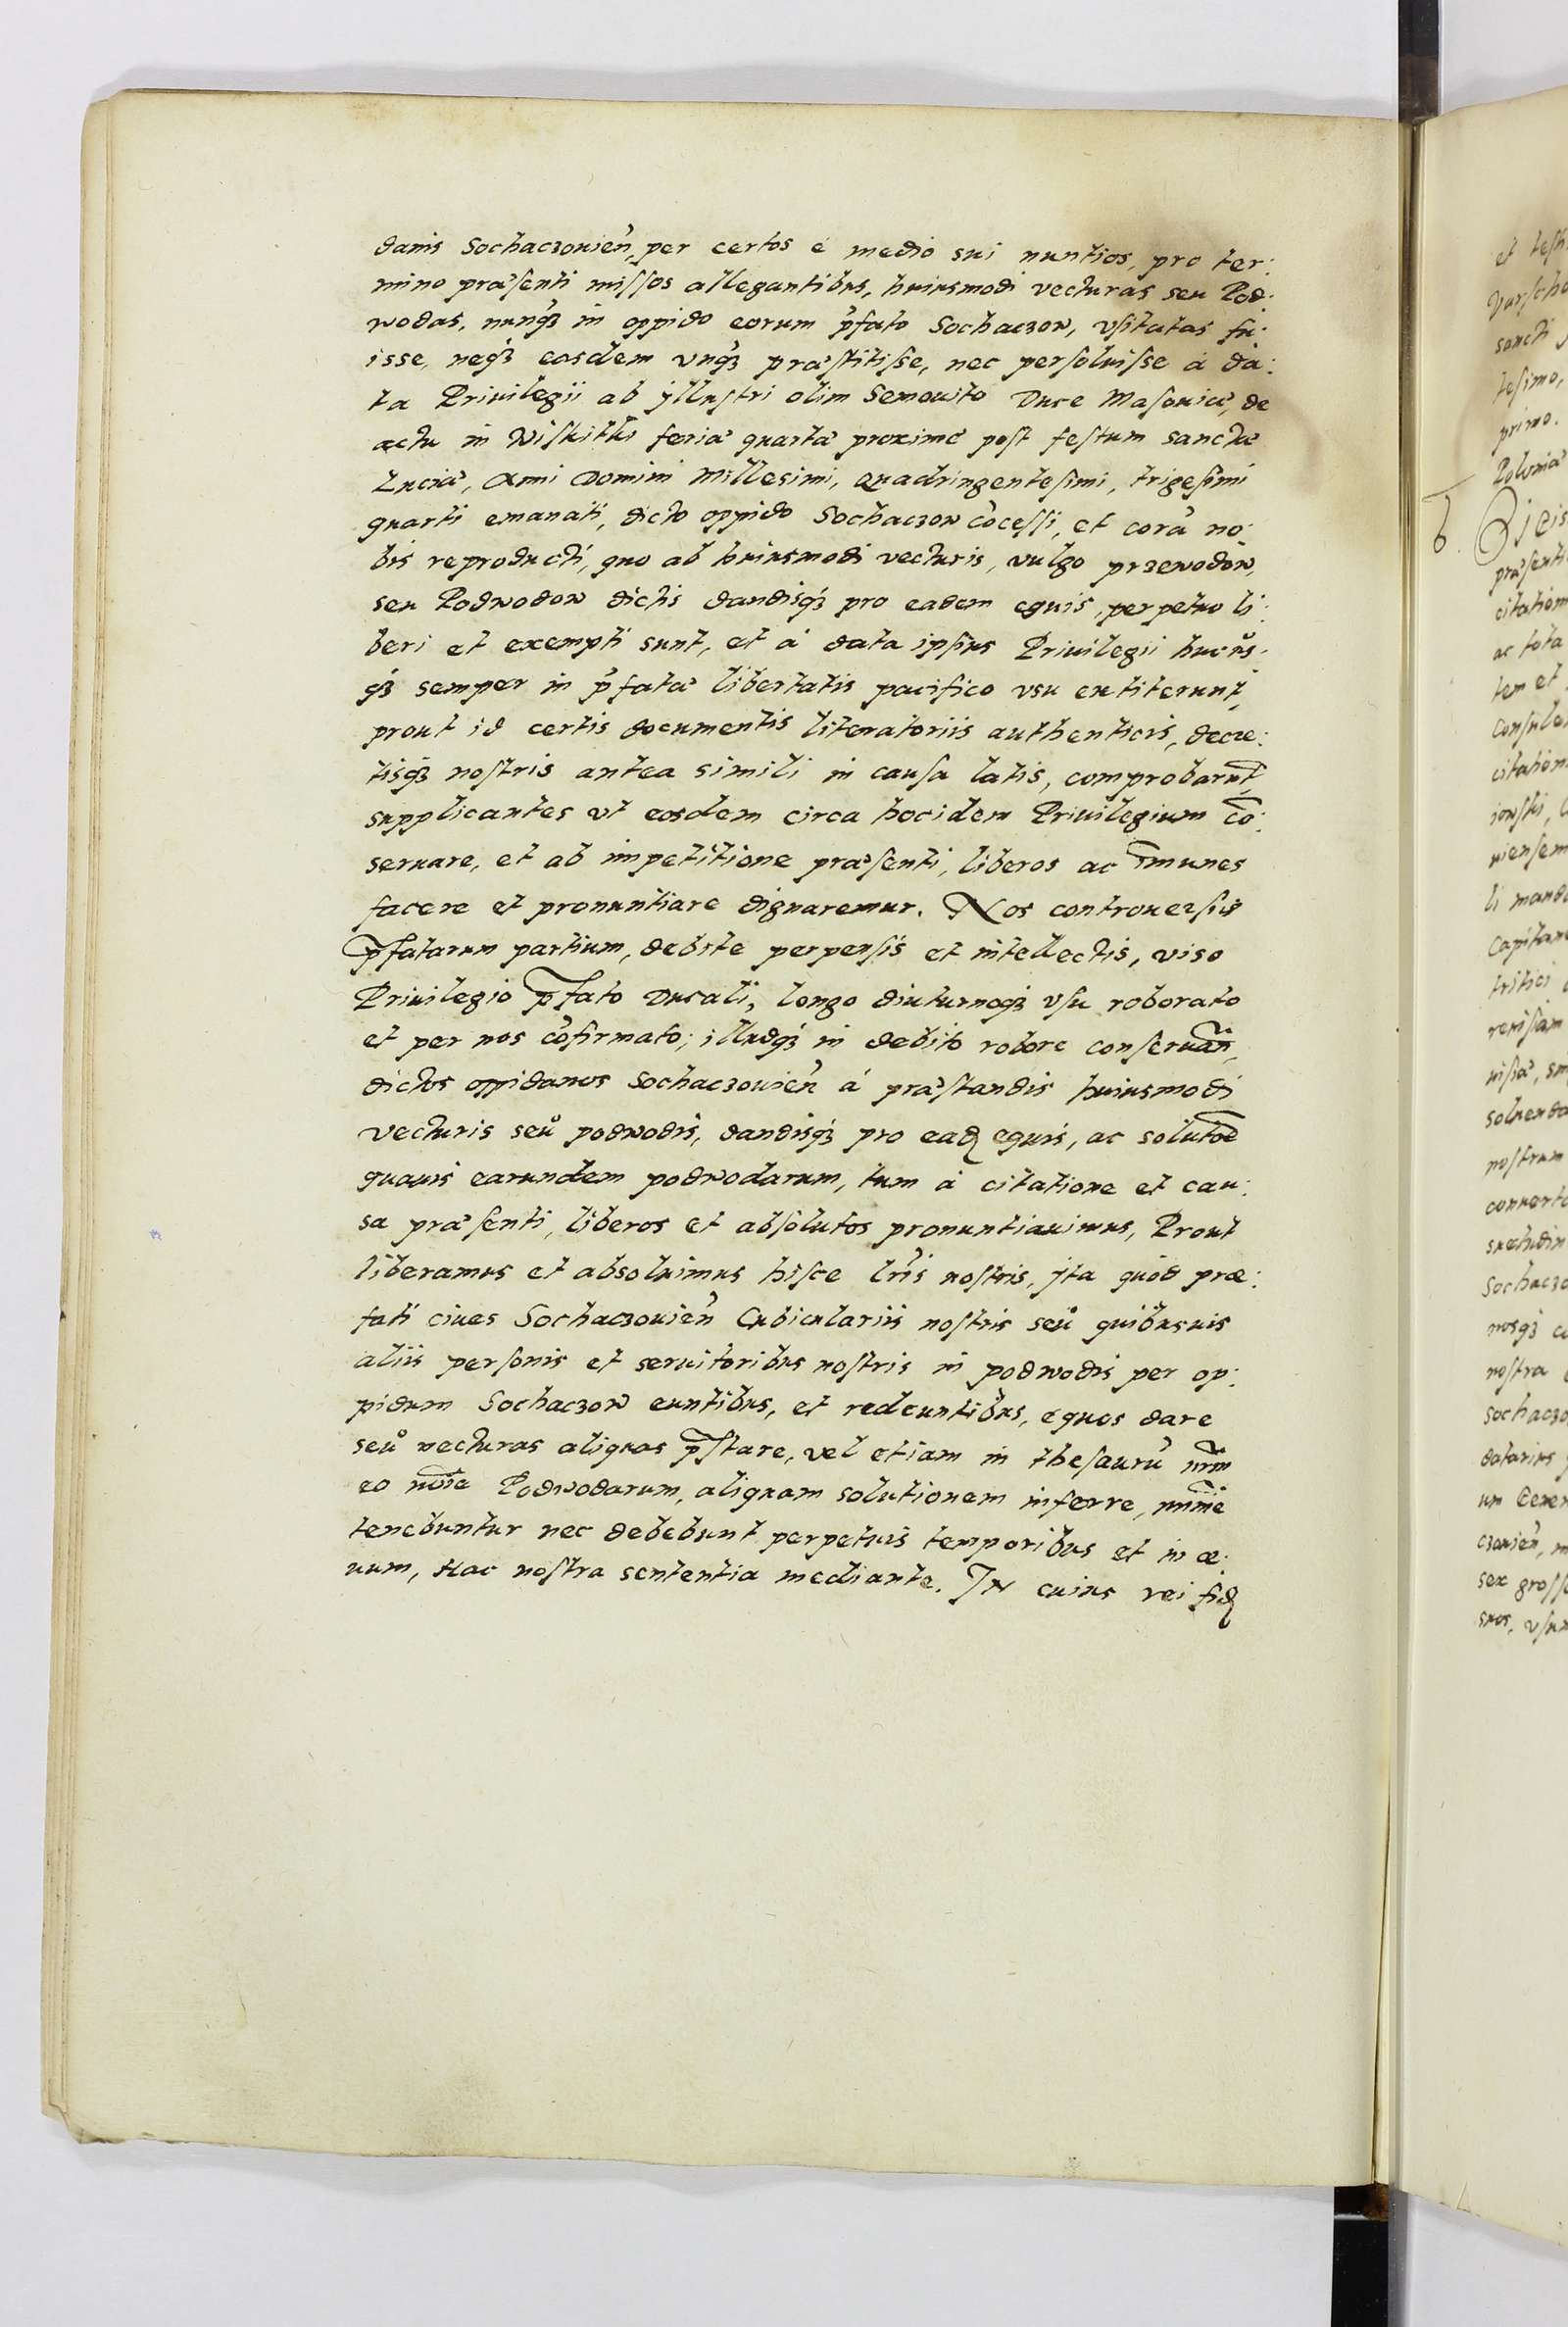 danis Sochaczouien̄, per certos è medio sui nuntios, pro ter:
mino præsenti missos allegantibus, huiusmodi vecturas seu Pod:
wodas, nunq́ꝫ in oppido eorum p̄fato Sochaczow, vsitatas fu:
isse, neq́ꝫ eosdem vnq́ꝫ præstitisse, nec persoluisse à da:
ta Priuilegii ab yllustri olim Semouito Duce Masouiæ, de
actu in Wiskitki feria quarta proxime post festum sanctæ
Luciæ, Anni Domini Millesimi, Quadringentesimi, trigesimi
quarti emanati, dicto oppido Sochaczow cōcessi, et corā no:
bis reproducti, quo ab huiusmodi vecturis, vulgo przewodow,
seu Podwodow dictis dandisq́ꝫ pro eadem equis, perpetuo li:
beri et exempti sunt, et à data ipsius Priuilegii hucus:
q́ꝫ semper in p̄fatæ libertatis pacifico vsu extiterunt,
prout id certis documentis literatoriis authenticis, decre:
tisq́ꝫ nostris antea simili in causa latis, comprobarūt,
supplicantes vt eosdem circa hocidem Priuilegium cō:
seruare, et ab impetitione præsenti, liberos ac īmunes
facere et pronuntiare dignaremur. Nos controuersiis
p̄fatarum partium, debite perpensis et intellectis, viso
Priuilegio p̄fato Ducali, longo diuturnoq́ꝫ vsu roborato
et per nos cōfirmato; illudq́ꝫ in debito robore conseruan̄,
dictos oppidanos Sochaczouien̄ à præstandis huiusmodi
vecturis seu podwodis, dandisq́ꝫ pro eadꝫ equis, ac solutōe
quauis earundem podwodarum, tum à citatione et cau:
sa præsenti, liberos et absolutos pronuntiauimus, Prout
liberamus et absoluimus hisce lr̄is nostris, yta quod præ:
fati ciues Sochaczouien̄ Cubiculariis nostris seu quibusuis
aliis personis et seruitoribus nostris in podwodis per op:
pidum Sochaczow euntibus, et redeuntibus, equos dare
seu vecturas aliquas p̄stare, vel etiam in thesaurū nr̄m
eo noīe Podwodarum, aliquam solutionem inferre, minīe
tenebuntur nec debebunt perpetuis temporibus et in æ:
uum, Hac nostra sententia mediante. IN cuius rei fidꝫ
et
Varscho
sancti
tesimo,
primo.
Poloniæ
6.
præsenti
citation
ac tota
tem et
consule
citation
li mand
Capitan
tritici
soluenda
nostrum
Sochacz
nosq́ꝫ
nostra
Sochaczo
datarius
czouien̄,
sex gross
suos, vsu